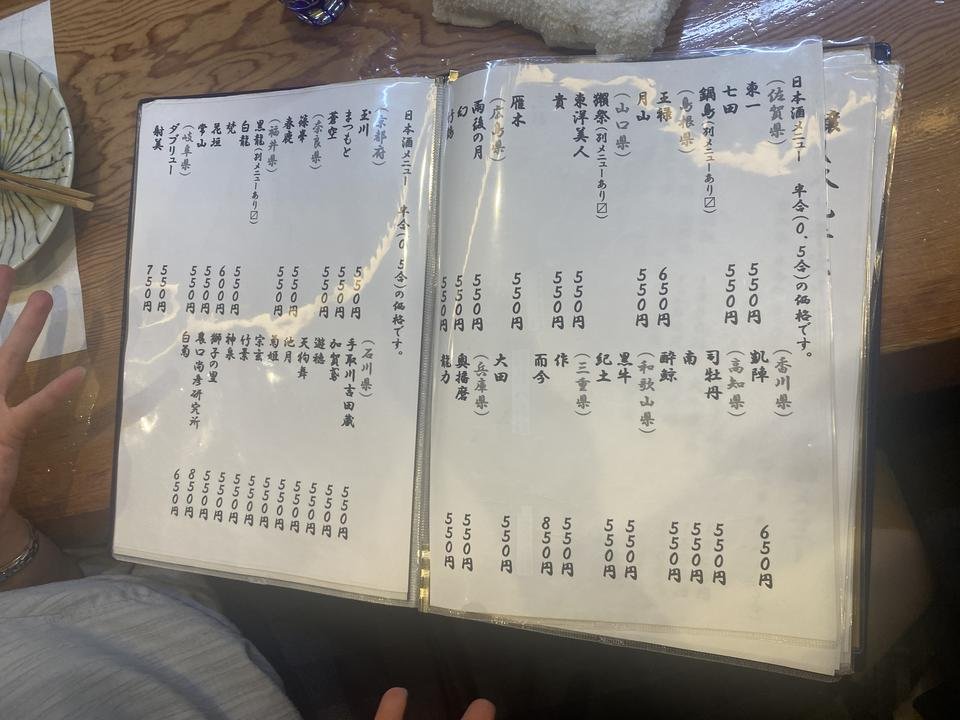 日本酒メニュー 半合(0.5合)の価格です。
(佐賀県)
東一 550円
七田 550円
鍋島(別メニューあり〼)
(島根県)
王祿 650円
月山 550円
(山口県)
獺祭(別メニューあり〼)
東洋美人 550円
貴 550円
雁木 550円
(広島県)
雨後の月 550円
幻 550円
550円
(香川県)
凱陣 650円
(高知県)
司牡丹 550円
南 550円
酔鯨 550円
(和歌山県)
黒牛 550円
紀土 550円
(三重県)
作 550円
而今 850円
大田 550円
(兵庫県)
奥播磨 550円
龍力 550円
日本酒メニュー 半合(0.5合)の価格です。
(京都府)
玉川 550円
まつもと 550円
蒼空 550円
(奈良県)
篠峯 550円
春鹿 550円
(福井県)
黒龍(別メニューあり〼)
白龍 550円
梵 600円
花垣 550円
常山 550円
(岐阜県)
ダブリュー 550円
射美 750円
(石川県)
手取川古田蔵 550円
加賀鳶 550円
遊穂 550円
天狗舞 550円
池月 550円
菊姫 550円
宗玄 550円
竹葉 550円
神泉 550円
獅子の里 550円
農口尚彦研究所 850円
白菊 650円